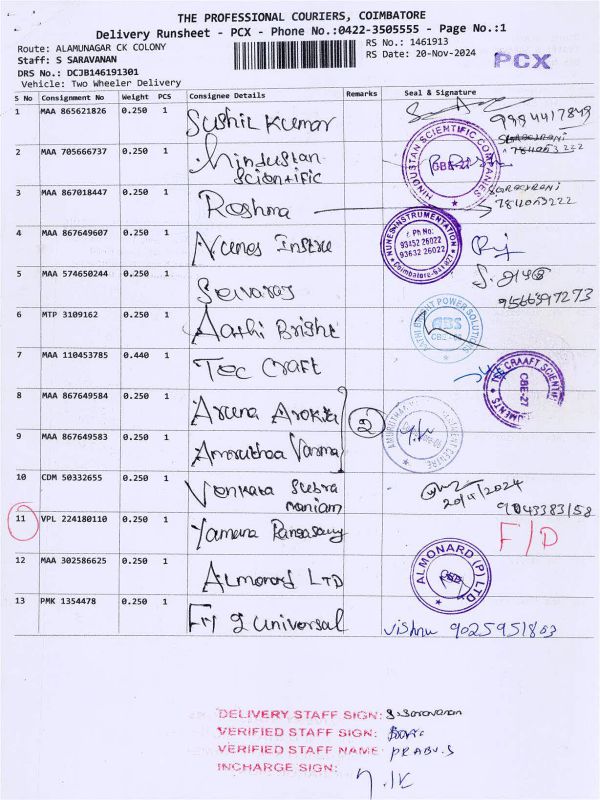 THE PROFESSIONAL COURIERS, COIMBATORE
Delivery Runsheet - PCX - Phone No.:0422-3505555 - Page No.:1
Route: ALAMUNAGAR CK COLONY
RS No.: 1461913
Staff: S SARAVANAN
RS Date: 20-Nov-2024
PCX
DRS No.: DCJB146191301
Vehicle: Two Wheeler Delivery
S No Consignment No Weight PCS Consignee Details Remarks Seal & Signature
1 MAA 865621826 0.250 1 Sushil Kumar
2 MAA 705666737 0.250 1 Hindustan
Scientific
HINDUSTAN SCIENTIFIC COMPANIES
CBE-27
3 MAA 867018447 0.250 1 Reshma
7811053222
4 MAA 867649607 0.250 1 Nunes Instru
NUNES INSTRUMENTATION
Ph No:
93452 26022
93632 26022
Coimbatore-641 027
5 MAA 574650244 0.250 1 Selvaraj
9566397273
6 MTP 3109162 0.250 1 Aathi Bright
AATHI BRIGHT POWER SOLUTIONS
ABS
7 MAA 110453785 0.440 1 Tec Craft
CBE-27
8 MAA 867649584 0.250 1 Aruna Arokia
2
9 MAA 867649583 0.250 1 Amruthaa Varma
10 CDM 50332655 0.250 1 Venkata Subra
maniam
20/11/2024
9043383158
11 VPL 224180110 0.250 1 Yamuna
F/D
12 MAA 302586625 0.250 1 Almonard LTD
ALMONARD (P) LTD
13 PMK 1354478 0.250 1 Universal
Vishnu
DELIVERY STAFF SIGN: S.Saravanan
VERIFIED STAFF SIGN:
VERIFIED STAFF NAME: PRABU.S
INCHARGE SIGN: